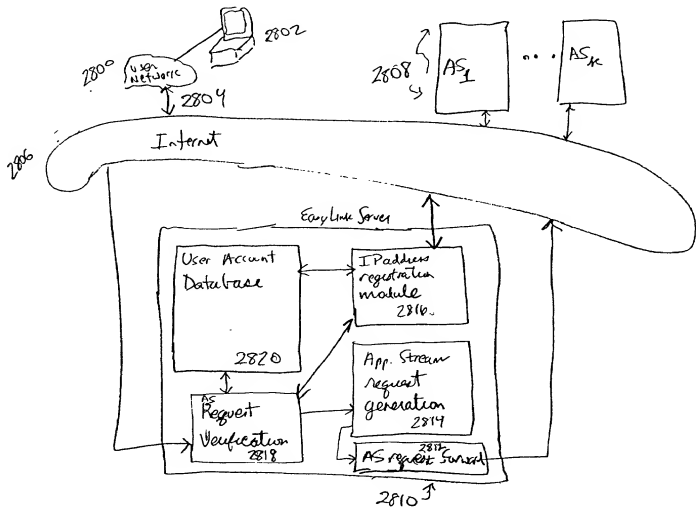 2802
2800
User
Network
2804
2808
AS1
• • •
ASk
2806
Internet
EasyLink Server
User Account
Database
2820
IP address
registration
module
2816
App. Stream
request
generation
2814
AS
Request
Verification
2818
2812
AS request forward
2810